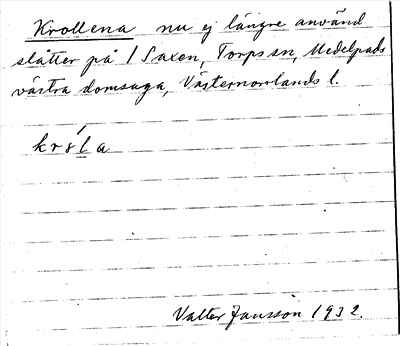 Krollena nu ej längre använd
slåtter på 1 Saxen, Torps sn, Medelpads
västra domsaga, Västernorrlands l.
kr8́la
Valter Jansson 1932.